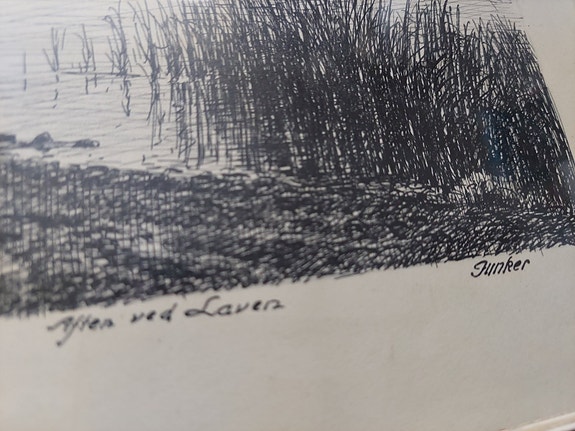 Aften ved Laven
Junker